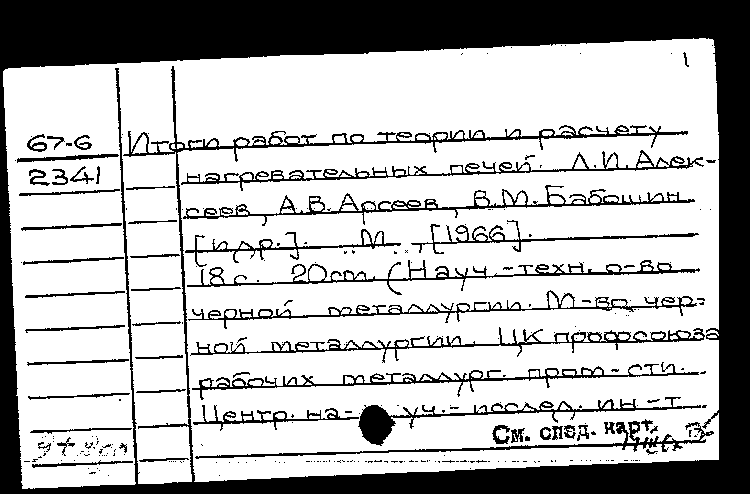 1
67-6 Итоги работ по теории и расчету
2341 нагревательных печей. Л.И. Алек-
сеев, А.В. Арсеев, В.М. Бабошин
[и др.]. М., [1966].
18 с. 20 cm. (Науч.-техн. о-во
черной металлургии. М-во чер-
ной металлургии. ЦК профсоюза
рабочих металлург. пром-сти.
Центр. на- уч.- исслед. ин-т
См. след. карт.